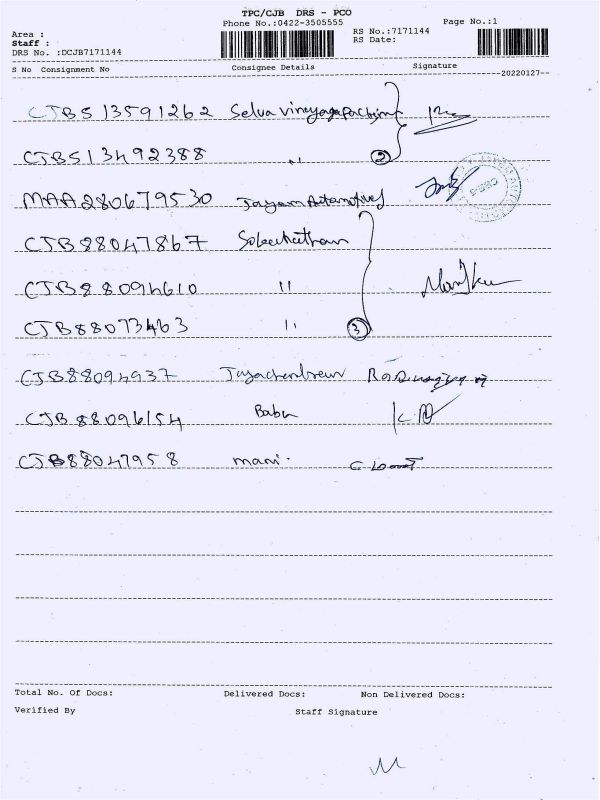 TPC/CJB DRS - PCO
Phone No.:0422-3505555
Page No.:1
Area :
RS No.:7171144
Staff :
RS Date:
DRS No. :DCJB7171144
S No Consignment No Consignee Details Signature
--20220127--
CJBS13591262 Selva vinayaga
CJBS13492388 " 2
MAA280679530 Jayam Automotives
CJB88047867
CJB88094610 "
CJB88073463 " 3
CJB88094937 Jayachandran
CJB88096154 Babu
CJB88047958 mani.
Total No. Of Docs: Delivered Docs: Non Delivered Docs:
Verified By Staff Signature